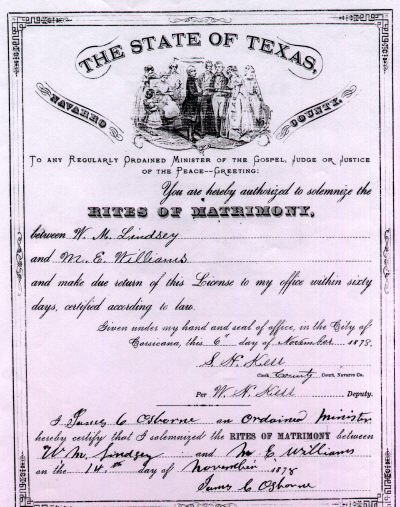 THE STATE OF TEXAS,
NAVARRO COUNTY.
TO ANY REGULARLY ORDAINED MINISTER OF THE GOSPEL, JUDGE OR JUSTICE
OF THE PEACE--GREETING:
You are hereby authorized to solemnize the
RITES OF MATRIMONY,
between W. M. Lindsey
and M. E. Williams
and make due return of this License to my office within sixty
days, certified according to law.
Given under my hand and seal of office, in the City of
Corsicana, this 6th day of November 1878.
S. H. Kerr
Clerk County Court, Navarro Co.
Per W. H. Kerr Deputy.
I James C Osborne an Ordained Minister
hereby certify that I solemnized the RITES OF MATRIMONY between
W M. Lindsey and M. E Williams
on the 14th day of November 1878
James C Osborne